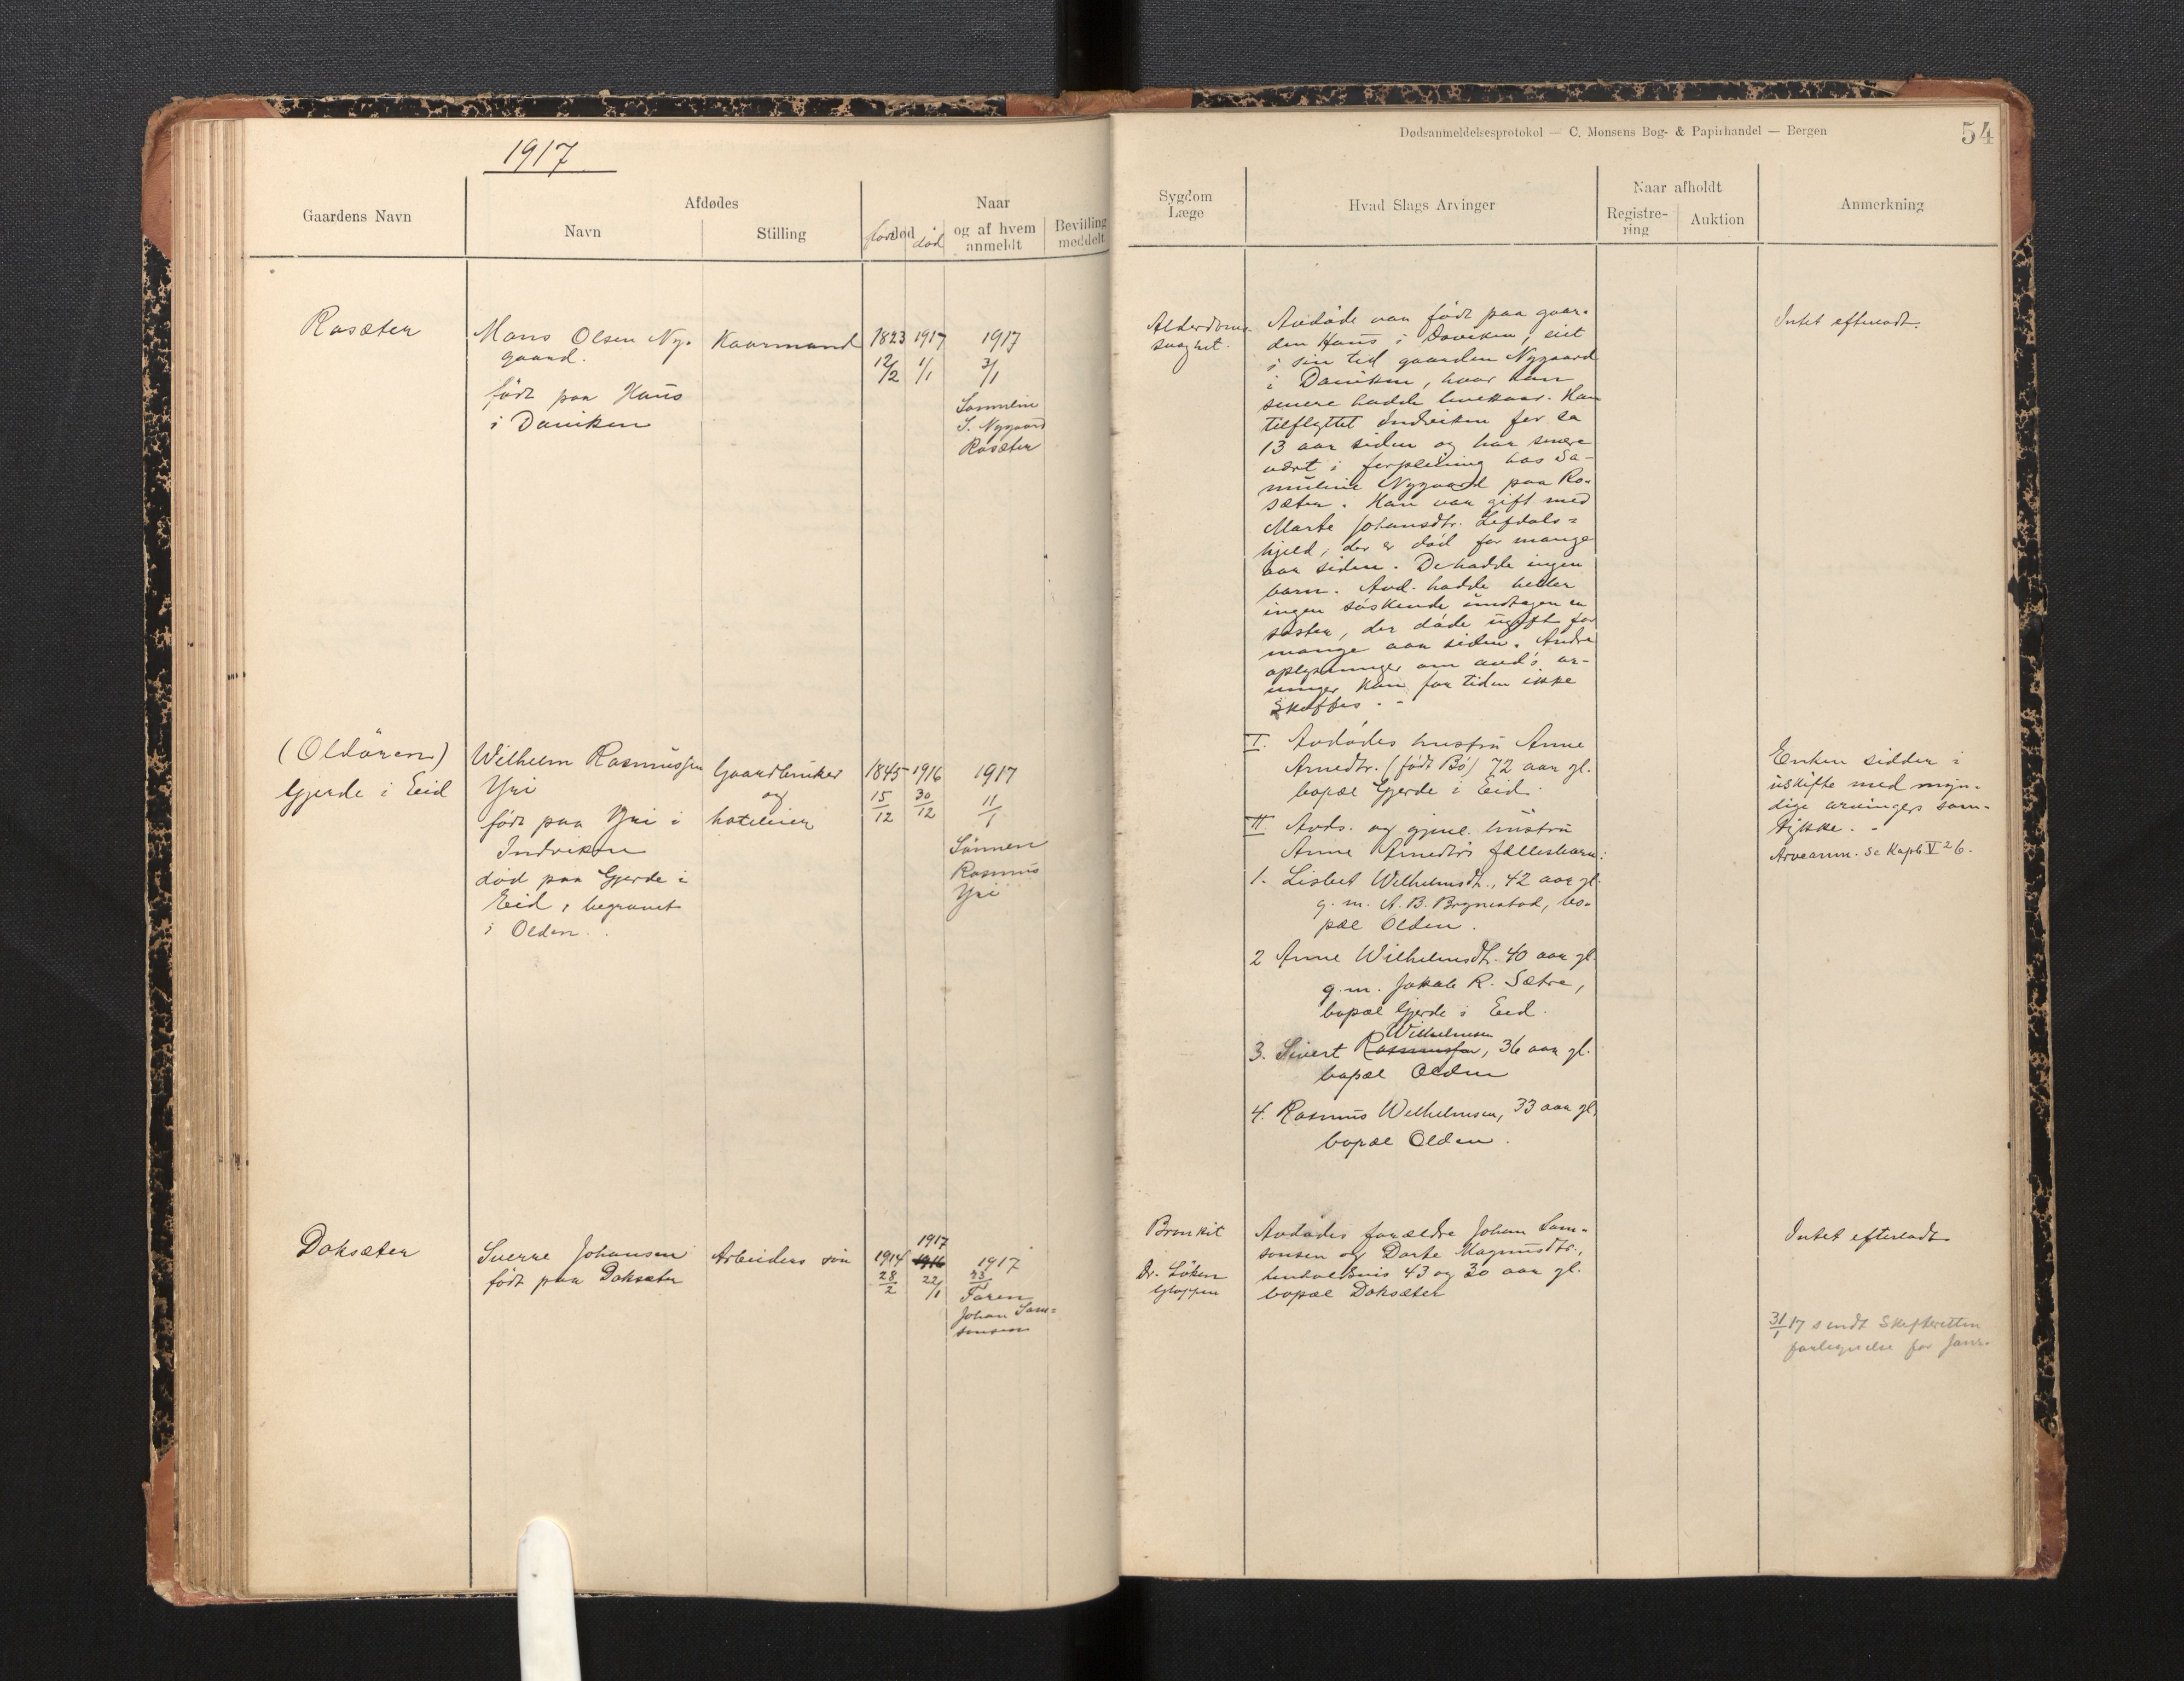 1917
Gaardens Navn
Afdødes
Navn
Stilling
født død død
Naar
og af hvem
anmeldt
Bevilling
meddelt
Rosæter
Mons Olsen Ny-
gaard.
født paa Haus
i Daviken
Kaarmand
1823 1917
12/2 1/1
1917
3/1
Samuline
S. Nygaard
Rosæter
(Oldøren)
Gjerde i Eid
Wilhelm Rasmussen
Yri
født paa Yri i
Indviken
død paa Gjerde i
Eid, begravet
i Olden.
Gaardbruker
og
hoteleier
1845 1916
15/12 30/12
1917
11/1
Sønnen
Rasmus
Yri
Doksæter
Sverre Johansen
født paa Doksæter
Arbeiders søn
1917
1914 1916
28/2 22/1
1917
23/1
Faren
Johan Sam-
sonsen
Dødsanmeldelsesprotokol — C. Monsens Bog- & Papirhandel — Bergen
54
Sygdom
Læge
Hvad Slags Arvinger
Naar afholdt
Registre-
ring
Auktion
Anmerkning
Alderdoms-
svaghet.
Avdøde var født paa gaar-
den Haus i Daviken, eiet
i sin tid gaarden Nygaard
i Daviken, hvor han
senere hadde livekaar. Han
tilflyttet Indviken for ca
13 aar siden og har senere
været i forpleining hos Sa-
muline Nygaard paa Ro-
sæter. Han var gift med
Marte Johansdtr. Lefdals-
hjeld, der er død for mange
aar siden. De hadde ingen
barn. Avd. hadde heller
ingen søskende undtagen en
søster, der døde ugift for
mange aar siden. Andre
oplysninger om avd's ar-
vinger kan for tiden ikke
skaffes. -
Intet efterladt.
I. Avdødes hustru Anne
Arnedtr. (født Bø) 72 aar gl.
bopæl Gjerde i Eid.
II. Avds. og gjenl. hustru
Anne Arnedtrs fællesbarn:
1. Lisbet Wilhelmsdt., 42 aar gl.
g. m. A. B. Brynestad, bo-
pæl Olden.
2 Anne Wilhelmsdt. 40 aar gl.
g. m. Jakob R. Sætre,
bopæl Gjerde i Eid.
Wilhelmsen
3. Sivert Rasmussen, 36 aar gl.
bopæl Olden
4. Rasmus Wilhelmsen, 33 aar gl,
bopæl Olden.
Enken sidder i
uskifte med myn-
dige arvingers sam-
tykke. -
Arveanm. se Kopib. V 26.
Bronkit
Dr. Løken
Gloppen
Avdødes forældre Johan Sam-
sonsen og Dorte Magnusdtr.,
henholdsvis 43 og 30 aar gl.
bopæl Doksæter
Intet efterladt
31/1 17 sendt Skifteretten
fortegnelse for Janr.